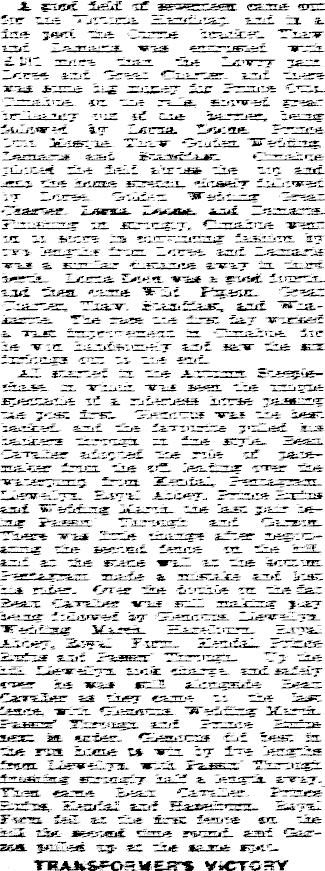 A good field of seventeen came out
for the Victoria Handicap, and in a
fine post the Currie bracket Thaw
and Lemaris was entrusted with
more than the Lowry pair,
Loree and Great Charter, and there
was some big money for Prince
on the rails, showed great
brilliancy out of the barrier, being
followed by Lorna Doone, Prince
Thaw, Golden Wedding,
Lemaris and Standfast.
piloted the field across the top and
into the home stretch closely followed
by Loree, Golden Wedding, Great
Charter, Lorna Doone and Lemaris.
Finishing on strongly, went
on to score in convincing fashion by
two lengths from Loree and Lemaris
was a similar distance away in third
berth. Lorna Doone was a good fourth,
and then came Wild Pigeon, Great
Charter, Thaw, Standfast, and
The race the first day worked
a vast improvement in for
he won handsomely and saw the six
furlongs out to the end.
All started in the Autumn Steeple-
chase in which was seen the unique
spectacle of a riderless horse passing
the post first. Glenotus was the best
backed and the favourite pulled his
backers through in fine style. Beau
Cavalier adopted the role of pace-
maker from the off leading over the
waterjump from Kendal, Pentagram,
Llewellyn, Royal Abbey, Prince Rufus
and Wedding March, the last pair be-
ing Passin' Through and
There was little change after negoti-
ating the second fence on the hill,
and at the stone wall at the bottom
Pentagram made a mistake and lost
his rider. Over the double on the flat
Beau Cavalier was still making play
being followed by Glenotus, Llewellyn,
Wedding March, Hazelburn, Royal
Abbey, Royal Form, Kendal, Prince
Rufus and Passin' Through. Up the
hill Llewellyn took charge, and safely
over he was still alongside Beau
Cavalier as they came to the last
fence, with Glenotus, Wedding March,
Passin' Through and Prince Rufus
next in order. Glenotus did best in
the run home to win by five lengths
from Llewellyn, with Passin' Through
finishing strongly half a length away.
Then came Beau Cavalier, Prince
Rufus, Kendal and Hazelburn. Royal
Form fell at the first fence on the
hill the second time round and
pulled up at the same spot.
TRANSFORMER'S VICTORY